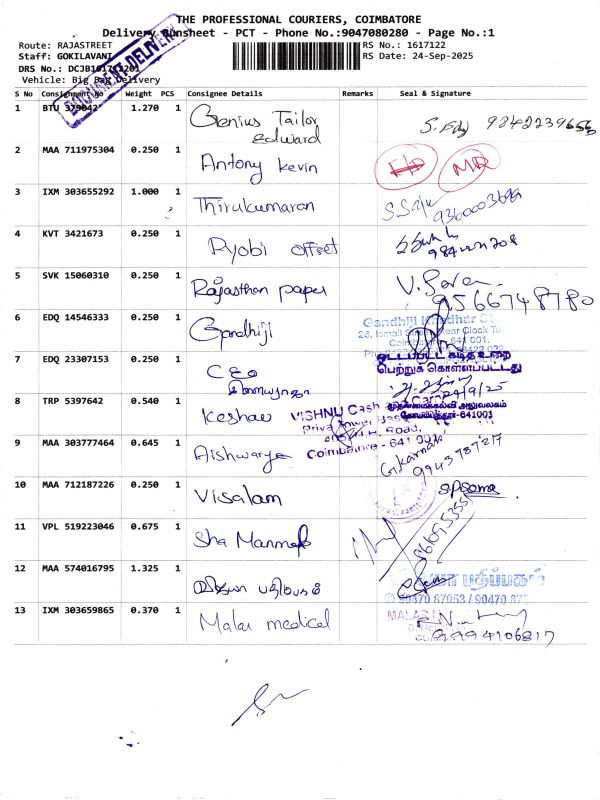 THE PROFESSIONAL COURIERS, COIMBATORE
Delivery Runsheet - PCT - Phone No.:9047080280 - Page No.:1
Route: RAJASTREET
RS No.: 1617122
Staff: GOKILAVANI
RS Date: 24-Sep-2025
DRS No.:
Vehicle: Big Bag Delivery
S No Consignment No Weight PCS Consignee Details Remarks Seal & Signature
1 BTU 379042 1.270 1 Genius Tailor edward
2 MAA 711975304 0.250 1 Antony kevin MR
3 IXM 303655292 1.000 1 Thirukumaran
4 KVT 3421673 0.250 1 Ryobi offset
5 SVK 15060310 0.250 1 Rajasthan paper 9566748780
6 EDQ 14546333 0.250 1 Gandhiji
Gandhiji Khadhar
Coimbatore - 641 001.
7 EDQ 23307153 0.250 1 CEO
ஒட்டப்பட்ட கடித உறை
பெற்றுக் கொள்ளப்பட்டது
24/9/25
8 TRP 5397642 0.540 1 Keshav
VISHNU Cash Carry
முதன்மைக்கல்வி அலுவலகம்
கோயம்புத்தூர்-641001
Road,
Coimbatore - 641 001
9 MAA 303777464 0.645 1 Aishwarya
9943787217
10 MAA 712187226 0.250 1 Visalam
11 VPL 519223046 0.675 1 Sha Manmap
12 MAA 574016795 1.325 1 விஜயா பதிப்பகம்
விஜயா பதிப்பகம்
90470 87053 / 90470 87
13 IXM 303659865 0.370 1 Malar medical
MALAR
9994106817